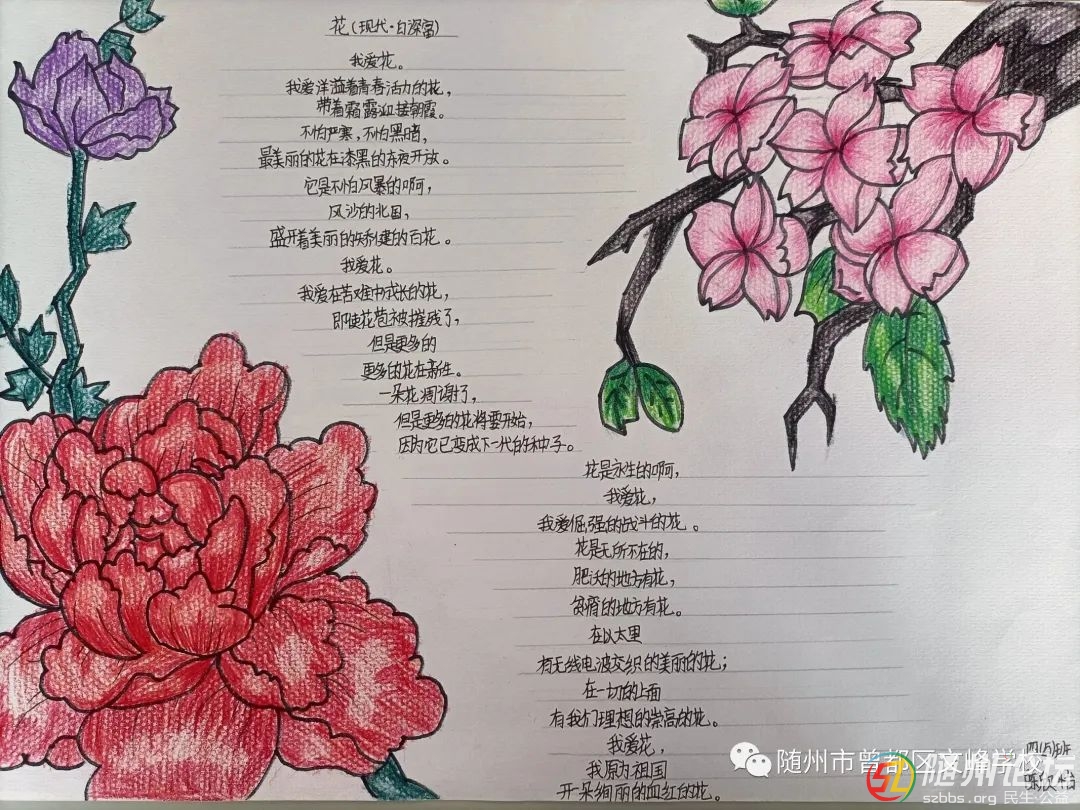 花(现代·白深富)
我爱花。
我爱洋溢着青春活力的花，
带着霜露迎接朝霞。
不怕严寒，不怕黑暗，
最美丽的花在漆黑的冻夜开放。
它是不怕风暴的啊，
风沙的北国，
盛开着美丽的矫健的百花。
我爱花。
我爱在苦难中成长的花，
即使花苞被摧残了，
但是更多的
更多的花在新生。
一朵花凋谢了，
但是更多的花将要开始，
因为它已变成下一代的种子。
花是永生的啊，
我爱花，
我爱倔强的战斗的花。
花是无所不在的，
肥沃的地方有花，
贫瘠的地方有花。
在以太里
有无线电波交织的美丽的花；
在一切的上面
有我们理想的崇高的花。
我爱花，
我原为祖国
开一朵绚丽的血红的花。
四(5)班
随州市曾都区文峰学校
随州论坛
szbbs.org 民生·公益